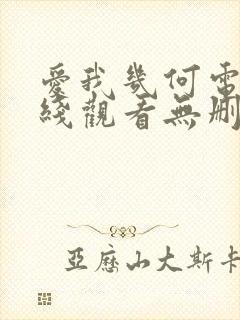 愛我幾何電
綫觀看無刪
亞歷山大斯卡